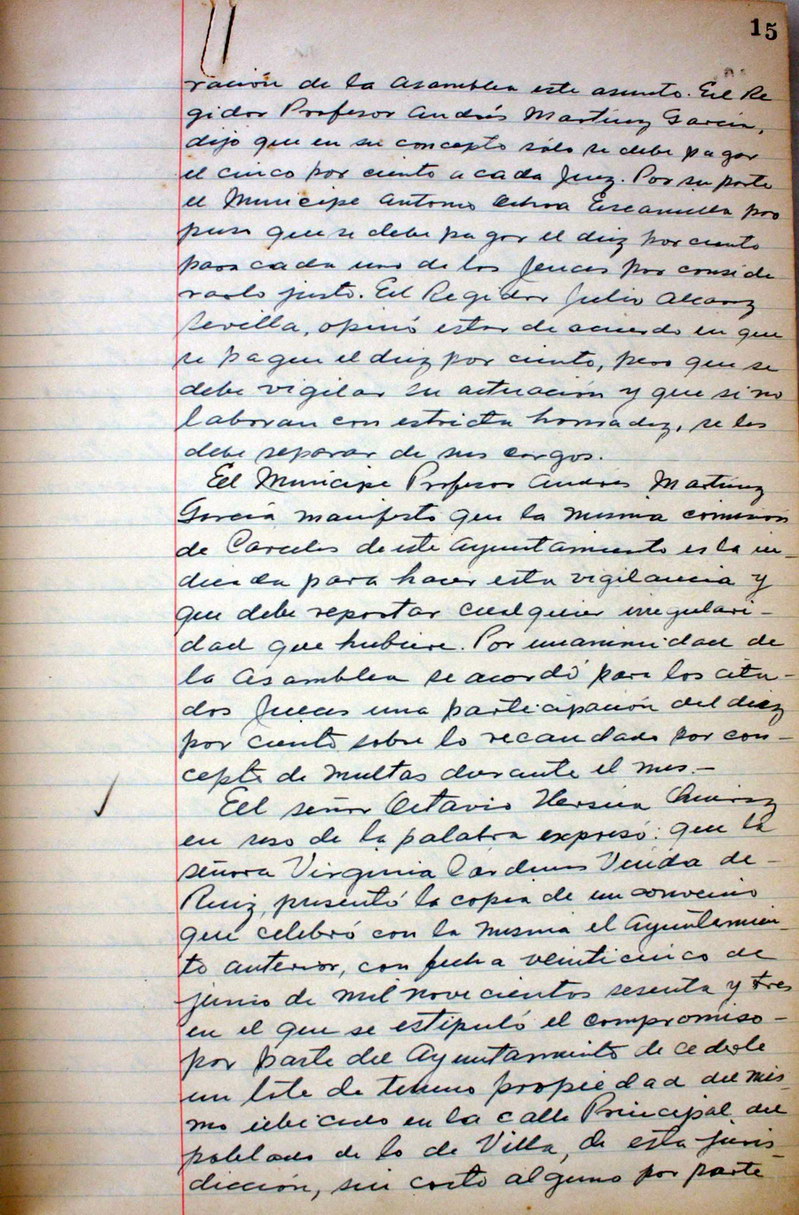 15
ración de la Asamblea este asunto. El Re
gidor Profesor Andrés Martínez García,
dijo que en su concepto sólo se debe pagar
el cinco por ciento a cada Juez. Por su parte
el Munícipe Antonio Ochoa Escamilla pro
puso que se debe pagar el diez por ciento
para cada uno de los Jueces por conside
rarlo justo. El Regidor Julio Alcaraz
Sevilla, opinó estar de acuerdo en que
se pague el diez por ciento, pero que se
debe vigilar su actuación y que si no
laboran con estricta honradez, se les
debe separar de sus cargos.
El Munícipe Profesor Andrés Martínez
García manifestó que la misma comisión
de Carceles de este Ayuntamiento es la in-
dicada para hacer esta vigilancia y
que debe reportar cualquier irregulari-
dad que hubiere. Por unanimidad de
la Asamblea se acordó para los cita-
dos Jueces una participación del diez
por ciento sobre lo recaudado por con-
cepto de multas durante el mes.-
El señor Octavio
en uso de la palabra expresó: que la
señora Virginia Cárdenas Viuda de-
Ruiz, presentó la copia de un convenio
que celebró con la misma el Ayuntamien-
to anterior, con fecha veinticinco de
junio de mil novecientos sesenta y tres
en el que se estipuló el compromiso-
por parte del Ayuntamiento de cederle
un lote de terreno propiedad del mis-
mo ubicado en la calle Principal del
poblado de lo de Villa, de esta juris-
dicción, sin costo alguno por parte